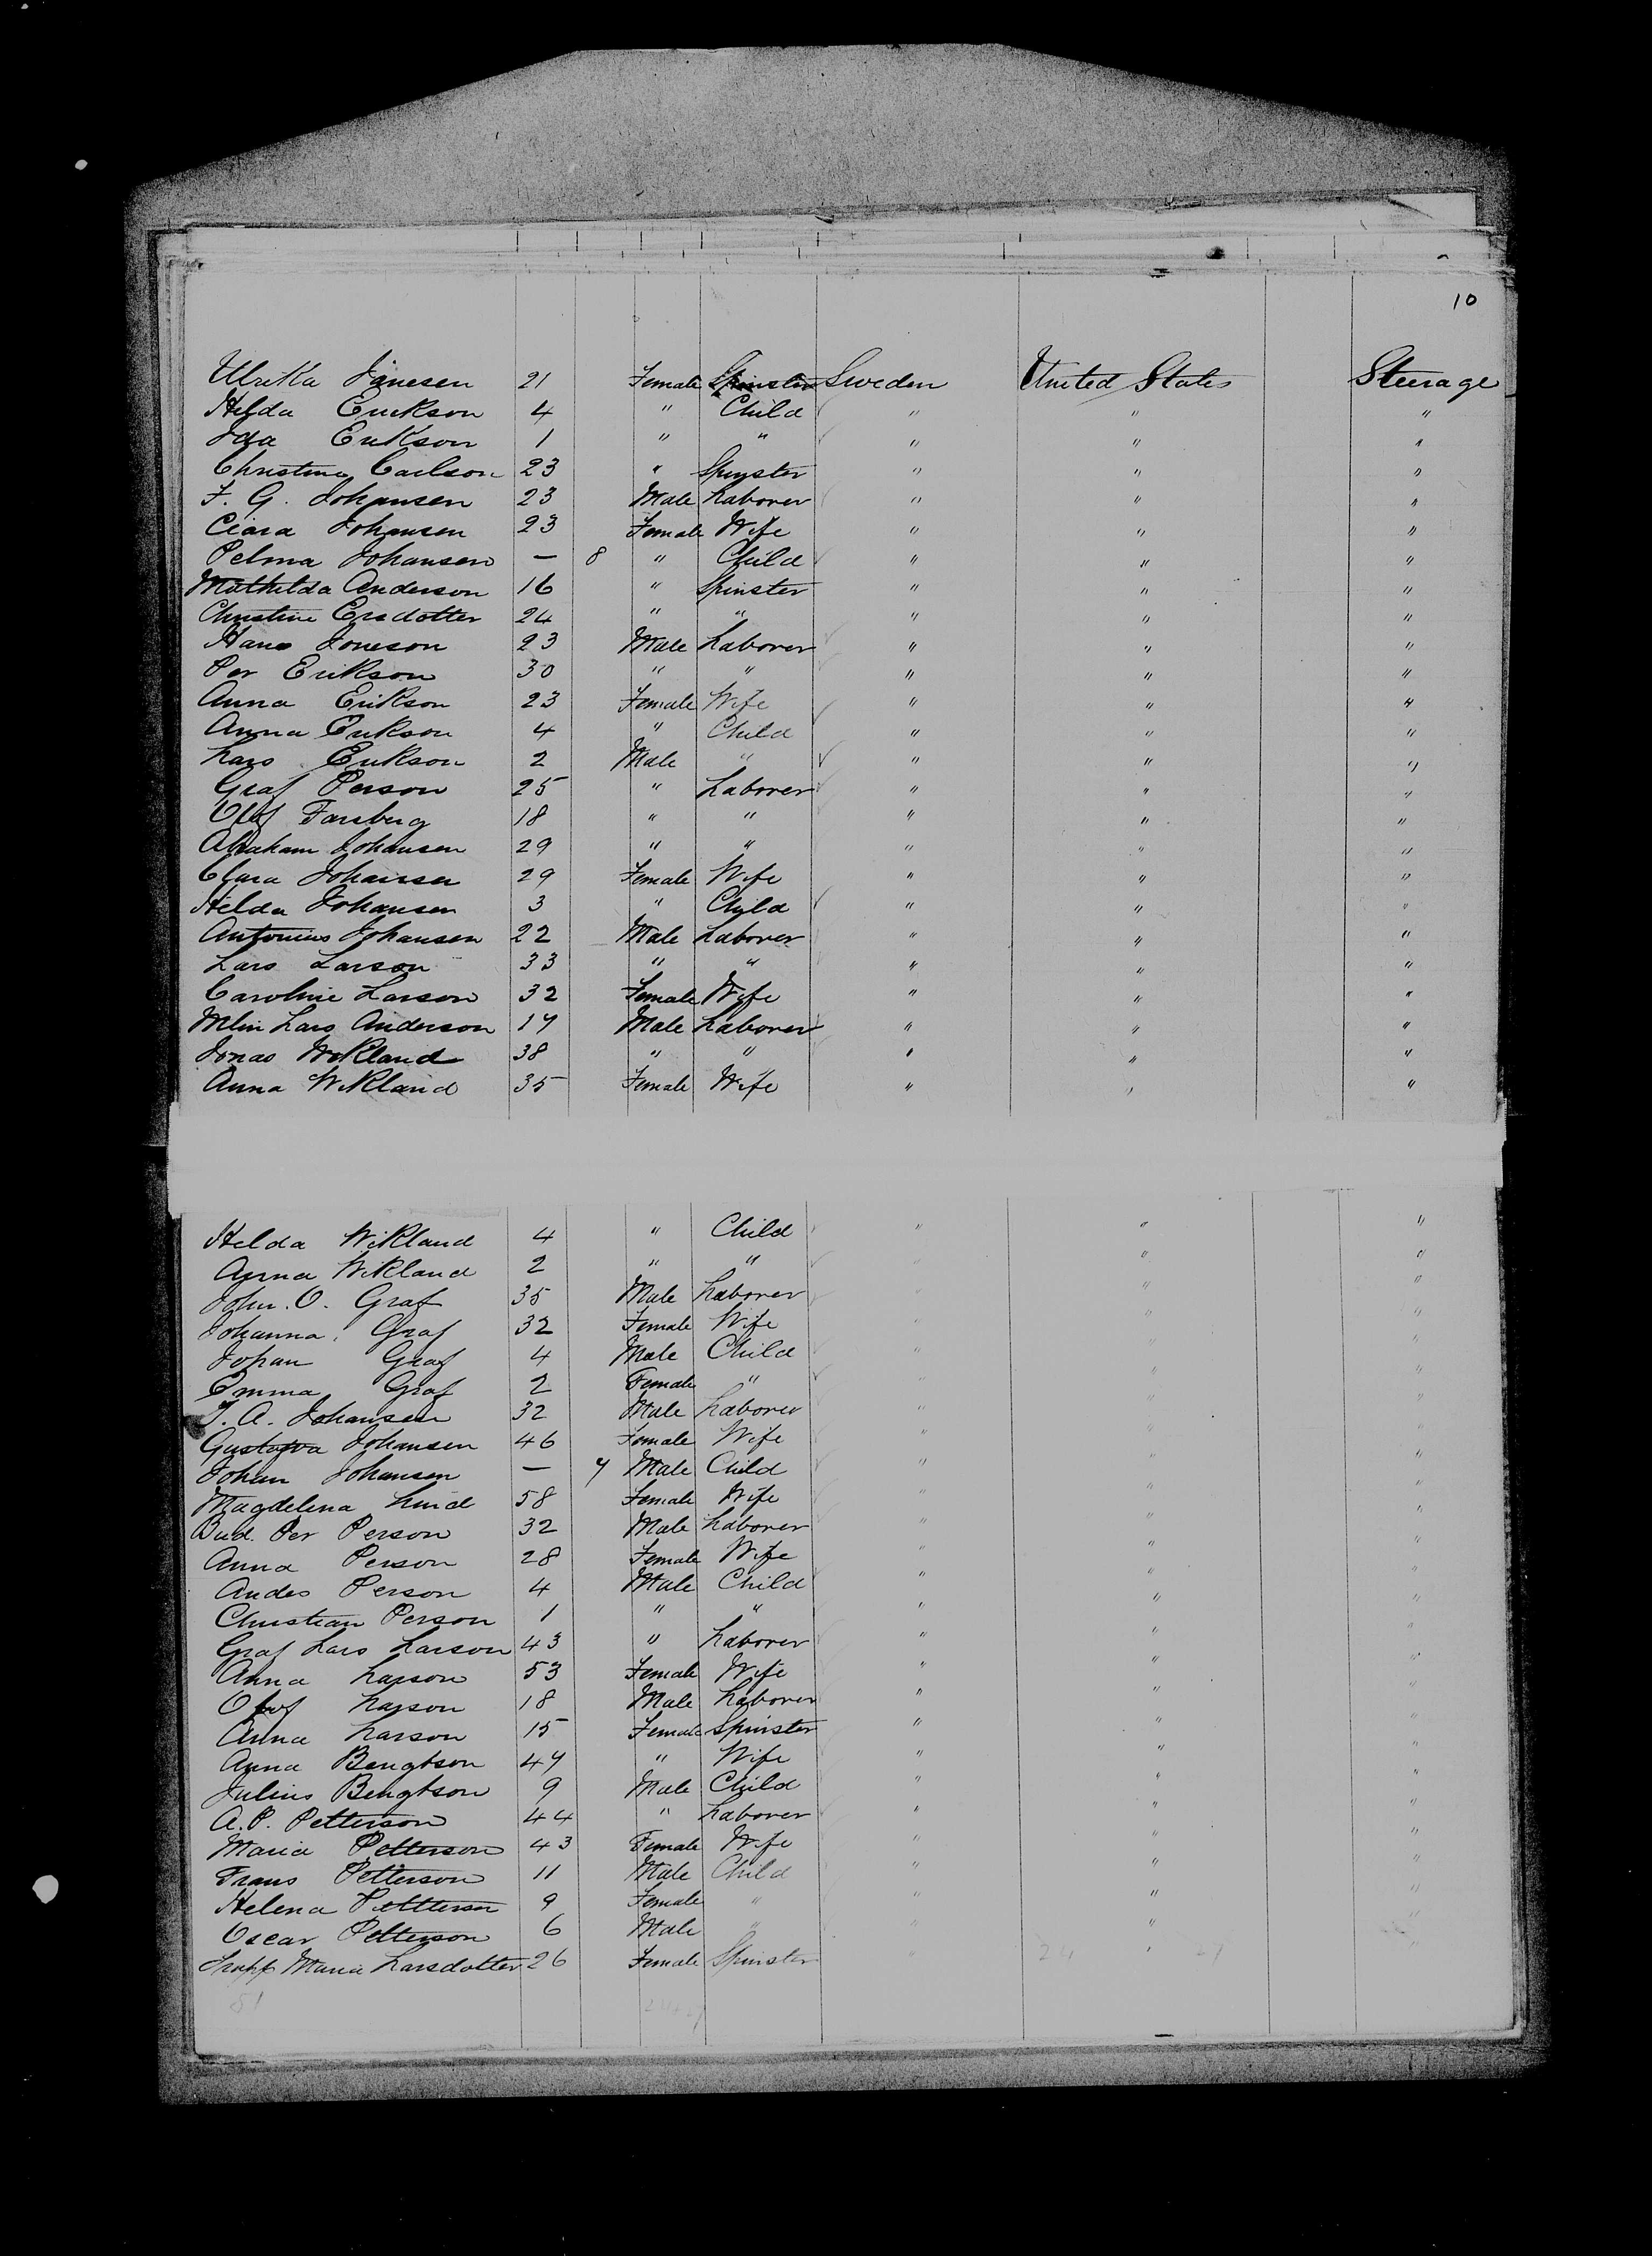 10
Ulrika Janesen 21 Female Spinster Sweden United States Steerage
Helda Erickson 4 " Child " " "
Ida Erikson 1 " " " " "
Christine Carlson 23 " Spinster " " "
F. G. Johansen 23 Male Laborer " " "
Clara Johansen 23 Female Wife " " "
Pelma Johansen — 8 " Child " " "
Mathilda Anderson 16 " Spinster " " "
Christine Ersdotter 24 " " " " "
Hans Joneson 23 Male Laborer " " "
Per Erikson 30 " " " " "
Anna Erikson 23 Female Wife " " "
Anna Erikson 4 " Child " " "
Lars Erikson 2 Male " " " "
Graf Person 25 " Laborer " " "
Olof Farsberg 18 " " " " "
Abraham Johansen 29 " " " " "
Clara Johansen 29 Female Wife " " "
Helda Johansen 3 " Child " " "
Antonius Johansen 22 Male Laborer " " "
Lars Larson 33 " " " " "
Caroline Larson 32 Female Wife " " "
Lars Anderson 17 Male Laborer " " "
Jonas Wikland 38 " " " " "
Anna Wikland 35 Female Wife " " "
Helda Wikland 4 " Child " " "
Anna Wikland 2 " " " " "
John. O. Graf 35 Male Laborer " " "
Johanna Graf 32 Female Wife " " "
Johan Graf 4 Male Child " " "
Emma Graf 2 Female " " " "
J. A. Johansen 32 Male Laborer " " "
Gustafva Johansen 46 Female Wife " " "
Johan Johansen — 7 Male Child " " "
Magdelena Lind 58 Female Wife " " "
Per Person 32 Male Laborer " " "
Anna Person 28 Female Wife " " "
Andes Person 4 Male Child " " "
Christian Person 1 " " " " "
Graf Lars Larson 43 " Laborer " " "
Anna Larson 53 Female Wife " " "
Olof Larson 18 Male Laborer " " "
Anna Larson 15 Female Spinster " " "
Anna Bengtson 47 " Wife " " "
Julius Bengtson 9 Male Child " " "
A. P. Petterson 44 " Laborer " " "
Maria Petterson 43 Female Wife " " "
Frans Petterson 11 Male Child " " "
Helena Petterson 9 Female " " " "
Oscar Petterson 6 Male " " " "
Maria Larsdotter 26 Female Spinster " 24 " 27 "
51